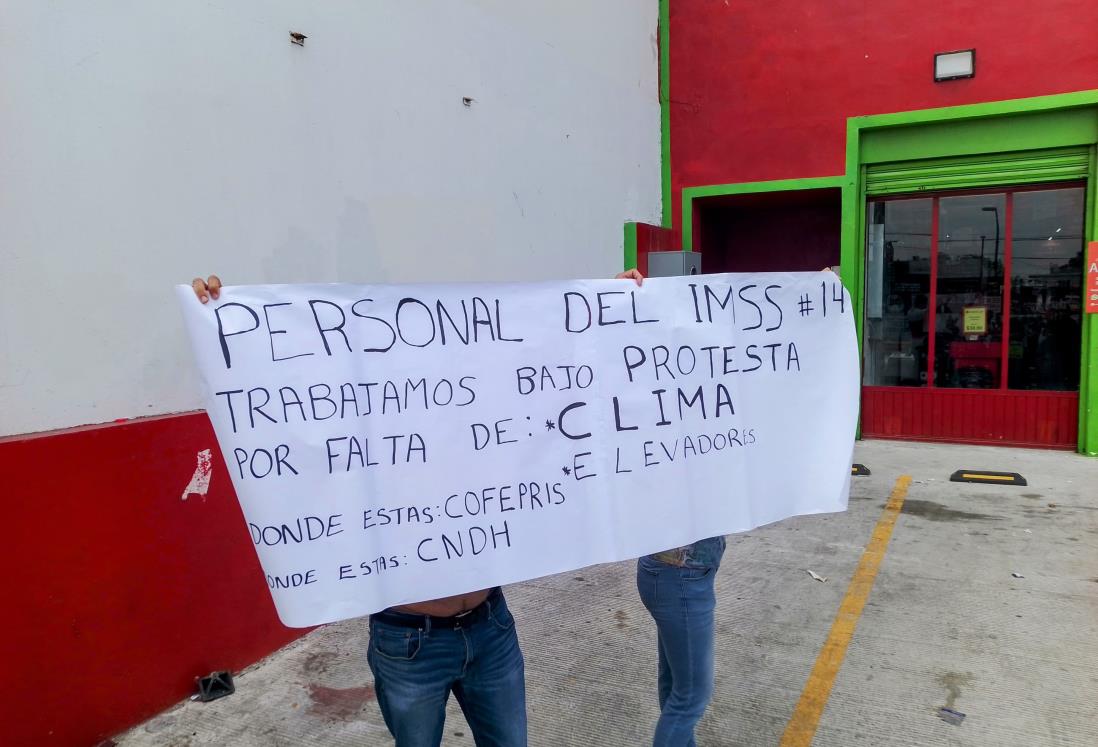 PERSONAL DEL IMSS #14
TRABAJAMOS BAJO PROTESTA
POR FALTA DE: *CLIMA
*ELEVADORES
DONDE ESTAS: COFEPRIS
ONDE ESTAS: CNDH